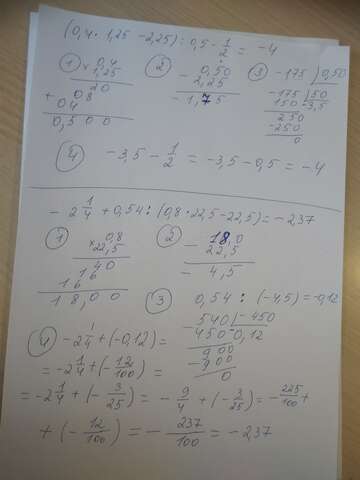 (0,4 · 1,25 - 2,25) : 0,5 - 1/2 = -4
1) × 0,4
1,25
20
+ 08
04
0,500
2) - 0,50
2,25
- 1,75
3) -175 | 0,50
-175 | 50
150 -3,5
250
-250
0
4) -3,5 - 1/2 = -3,5 - 0,5 = -4
- 2 1/4 + 0,54 : (0,8 · 22,5 - 22,5) = -237
1) × 0,8
22,5
40
16
16
18,00
2) - 18,0
22,5
- 4,5
3) 0,54 : (-4,5) = -0,12
- 540 | -450
450 -0,12
900
-900
0
4) -2 1/4 + (-0,12) =
= -2 1/4 + (- 12/100) =
= -2 1/4 + (- 3/25) = - 9/4 + (- 3/25) = - 225/100 +
+ (- 12/100) = - 237/100 = -237